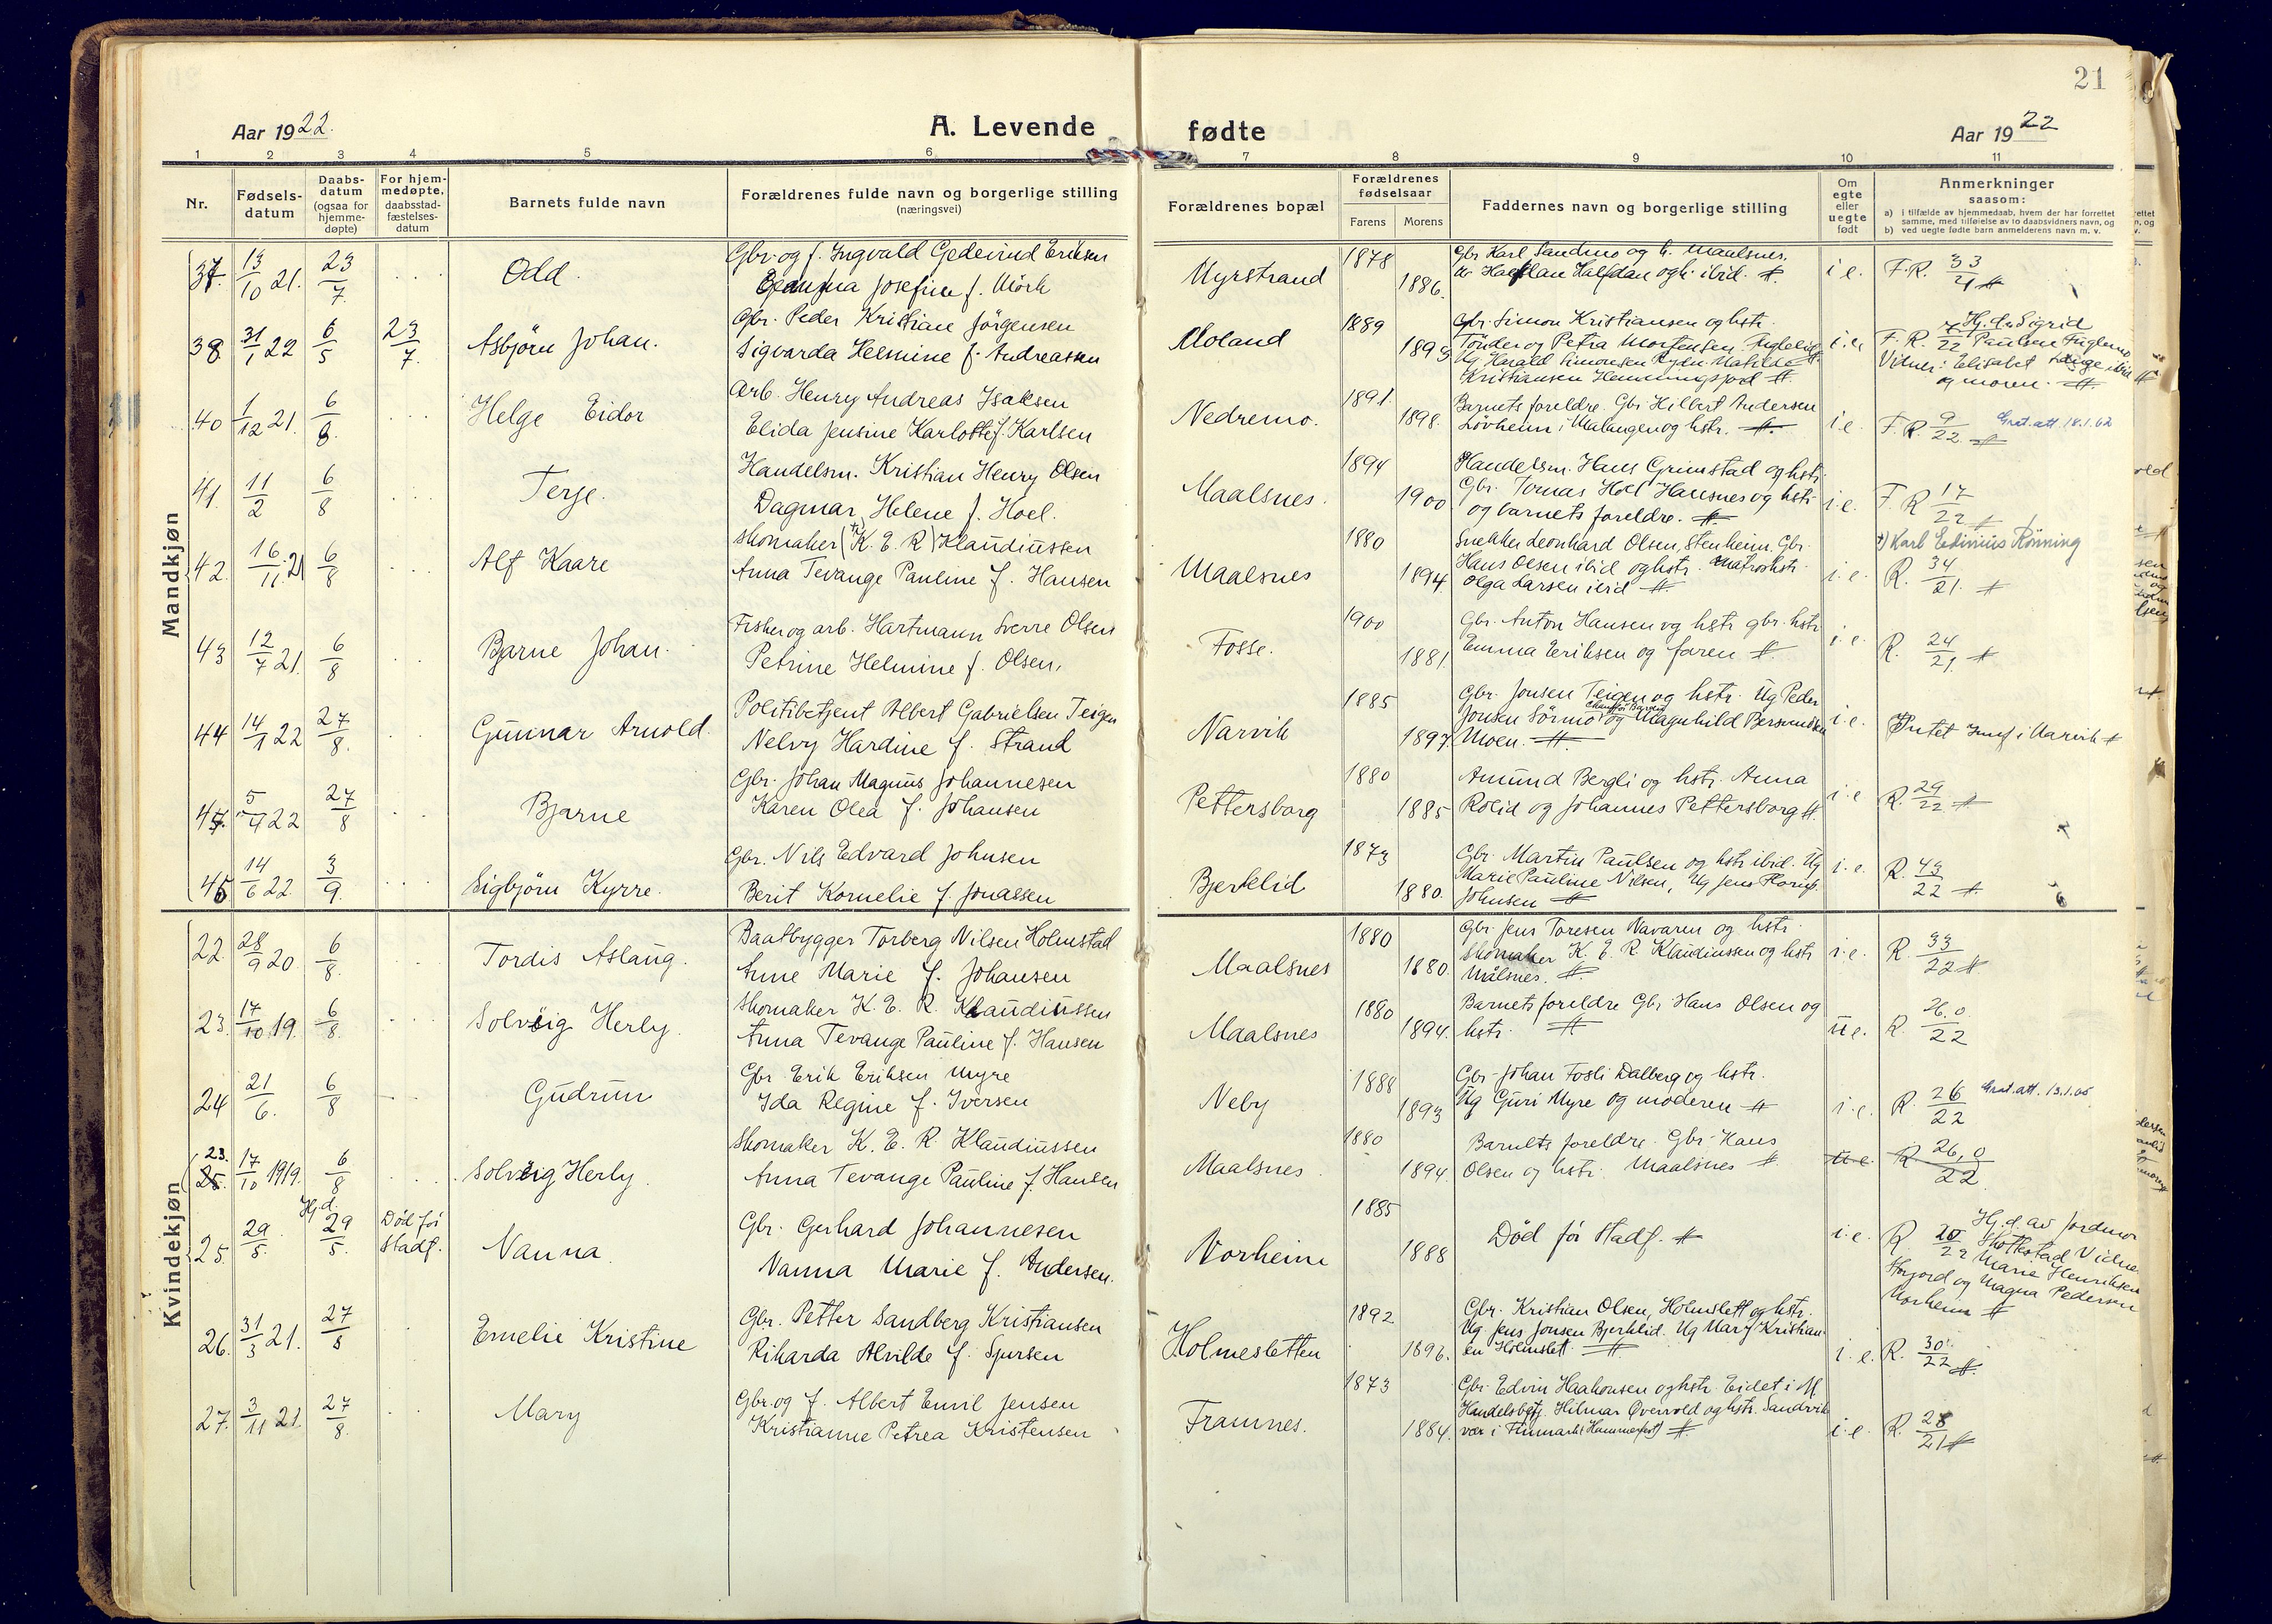 21
Aar 1922.
A. Levende
fødte
Aar 1922
1 2 3 4 5 6 7 8 9 10 11
Nr.
Fødsels-
datum
Daabs-
datum
(ogsaa for
hjemme-
døpte)
For hjem-
medøpte,
daabsstad-
fæstelses-
datum
Barnets fulde navn
Forældrenes fulde navn og borgerlige stilling
(næringsvei)
Forældrenes bopæl
Forældrenes
fødselsaar
Farens
Morens
Faddernes navn og borgerlige stilling
Om
egte
eller
uegte
født
Anmerkninger
saasom:
a) i tilfælde av hjemmedaab, hvem der har forrettet
samme, med tilføielse av to daabsvidners navn, og
b) ved uegte fødte barn anmelderens navn m. v.
Mandkjøn
37. 13/10 21. 23/7. Odd.
Gbr. og f. Ingvald Gedeirud Eriksen
Josefine f. Mörk
Myrstrand 1878 1886.
Gbr Karl Sandmo og h. Maalsnes.
Halfdan og h. ibid.
i e. F.R. 33/4
38 31/1 22 6/5 23/7. Asbjörn Johan.
Gbr. Peder Kristian Jörgensen
Sigvarda Helmine f. Andreassen
Moland 1889 1893
Gbr. Simon Kristiansen og hstr.
Tönder og Petra Mortensen
Ug Harald Simonsen
Kristiansen Hemmingsjord
i.e. F. R. 7/22 Hj. d. v Sigrid
Paulsen Fuglemo
Vitner: Elisabet ibid
og moren.
40 1/12 21. 6/8. Helge Eidor
Arb. Henry Andreas Isaksen
Elida Jensine Karlotte f. Karlsen
Nedremo. 1891. 1898.
Barnets foreldre. Gbr Hilbert Andersen
Lövheim i Malangen og hstr.
i.e. F. R. 9/22. Grat. att. 18.1.62
41. 11/2 6/8 Terje.
Handelsm. Kristian Henry Olsen
Dagmar Helene f. Hoel.
Maalsnes. 1894 1900
Handelsm. Hans Grimstad og hstr.
Gbr. Tomas Hoel Hansnes og hstr
og barnets foreldre.
i.e. F. R 17/22
42. 16/11 21 6/8 Alf Kaare
Skomaker (K. E. R) Klaudiussen
Anna Tevange Pauline f. Hansen
Maalsnes 1880 1894
Snekker Leonhard Olsen, Stenheim. Gbr.
Hans Olsen ibid og hstr. Matroshstr.
Olga Larsen ibid
i e. Karl Edinius Rönning
R. 34/21.
43 12/7 21. 6/8 Bjarne Johan.
Fisker og arb. Hartmann Sverre Olsen
Petrine Helmine f. Olsen.
Fosse. 1900 1881.
Gbr. Anton Hansen og hstr gbr. hstr
Emma Eriksen og faren
i e. R. 24/21.
44 14/1 22 27/8. Gunnar Arnold.
Politibetjent Albert Gabrielsen Teigen
Nelvy Hardine f. Strand
Narvik 1885 1897.
Gbr. Jonsen Teigen og hstr. Ug Peder
Jonsen Sörmo og Magnhild
Moen.
i e. i Narvik
45. 5/4 22 27/8 Bjarne
Gbr. Johan Magnus Johannesen
Karen Olea f. Johansen
Pettersborg 1880 1885
Amund Bergli og hstr. Anna
Rolid og Johannes Pettersborg
i e R. 29/22
46 14/6 22. 3/9. Sigbjörn Kyrre.
Gbr. Nils Edvard Johnsen
Berit Kornelie f. Jonassen
Bjerklid 1873 1880.
Gbr. Martin Paulsen og hstr ibid. Ug
Marie Pauline Nilsen, Ug Jens
Johnsen
i e. R. 43/22
Kvindekjøn
22. 28/9 20. 6/8. Tordis Aslaug.
Baatbygger Torberg Nilsen Holmstad
Anne Marie f. Johansen
Maalsnes 1880 1880.
Gbr Jens Toresen Navaren og hstr.
Skomaker K. E. R. Klaudiussen og hstr
Målsnes.
i.e. R. 33/22
23. 17/10 19. 6/8. Solveig Herly.
Skomaker K. E. R. Klaudiussen
Anna Tevange Pauline f. Hansen
Maalsnes 1880 1894.
Barnets foreldre Gbr Hans Olsen og
hstr.
u e. R. 26.0/22
24 21/6. 6/8 Gudrun
Gbr Erik Eriksen Myre
Ida Regine f. Iversen
Neby 1888 1893
Gbr Johan Fosli Dalberg og hstr.
Ug Guri Myre og moderen
i e. R. 26/22 Grat. att. 13.1.
23. 25. 17/10 1919. 6/8 Solveig Herly.
Skomaker K. E. R. Klaudiussen
Anna Tevange Pauline f. Hansen
Maalsnes 1880 1894.
Barnets foreldre. Gbr Hans
Olsen og hstr. Maalsnes
u e. R. 26,0/22
25. 29/5. Hj.d. 29/5. Död för stadf. Nanna
Gbr. Gerhard Johannesen
Nanna Marie f. Andersen.
Norheim 1885 1888
Död för stadf.
i.e. R 20/22 Hj. d. av jordmor
Skotkstad Vidner
Marie Henriksen
og Magna Pedersen
Norheim
26. 31/3 21. 27/8 Emelie Kristine
Gbr. Petter Sandberg Kristiansen
Rikarda Alvilde f. Sjursen
Holmesletten 1892 1896.
Gbr. Kristian Olsen, Holmslett og hstr.
Ug Jens Jonsen Bjerklid. Ug Mary Kristian
en Holmslett
i. e. R. 30/22
27. 3/11 21. 27/8. Mary
Gbr. og f. Albert Emil Jensen
Kristianne Petrea Kristensen
Framnes. 1873 1884.
Gbr. Edvin Haakonsen og hstr. Eidet i M.
Handelsbetj. Hilmar Övervold og hstr. Sandvik
vær i Finmark (Hammerfest)
i e. R. 28/21